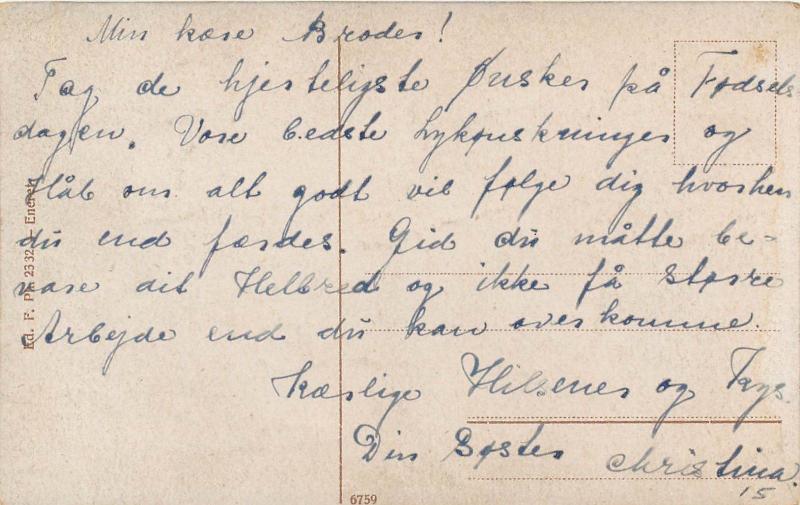 Min kære Broder!
Tag de hjerteligste Ønsker på Fødsels
dagen. Vore bedste Lykønskninger og
Håb om alt godt vil følge dig hvorhen
du end færdes. Gid du måtte be=
vare dit Helbred og ikke få større
Arbejde end du kan overkomme.
Kærlige Hilsener og Kys.
Din Søster Christina.
15
Ed. F. Ph. 2332 - Eneret
6759